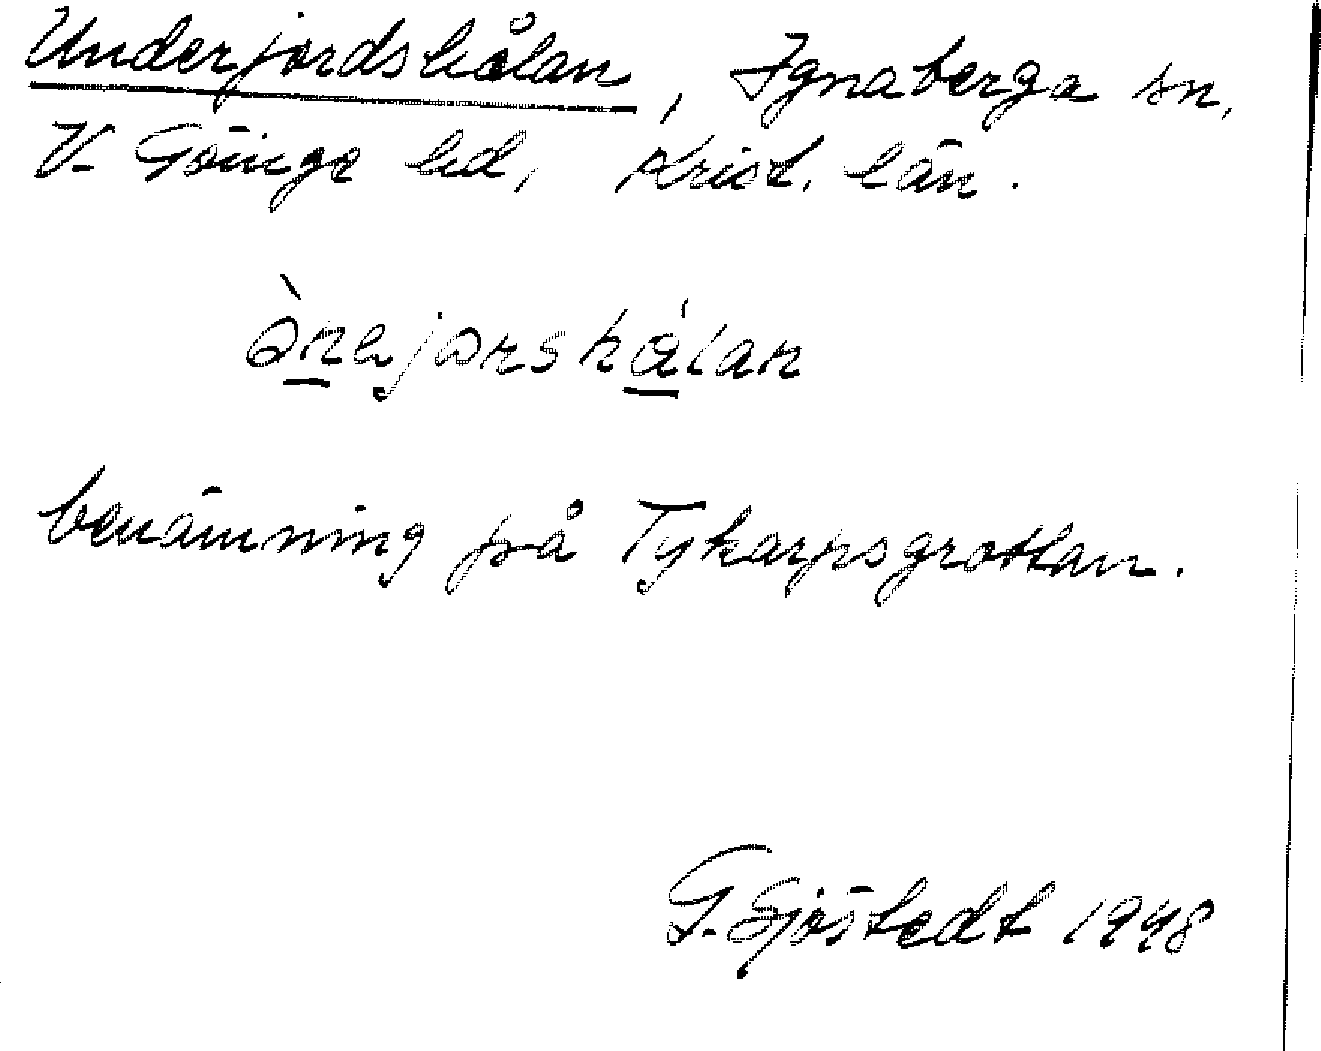 Underjordshålan, Ignaberga sn,
V. Göinge hd, Krist. län.
benämning på Tykarpsgrottan.
G. Sjöstedt 1948